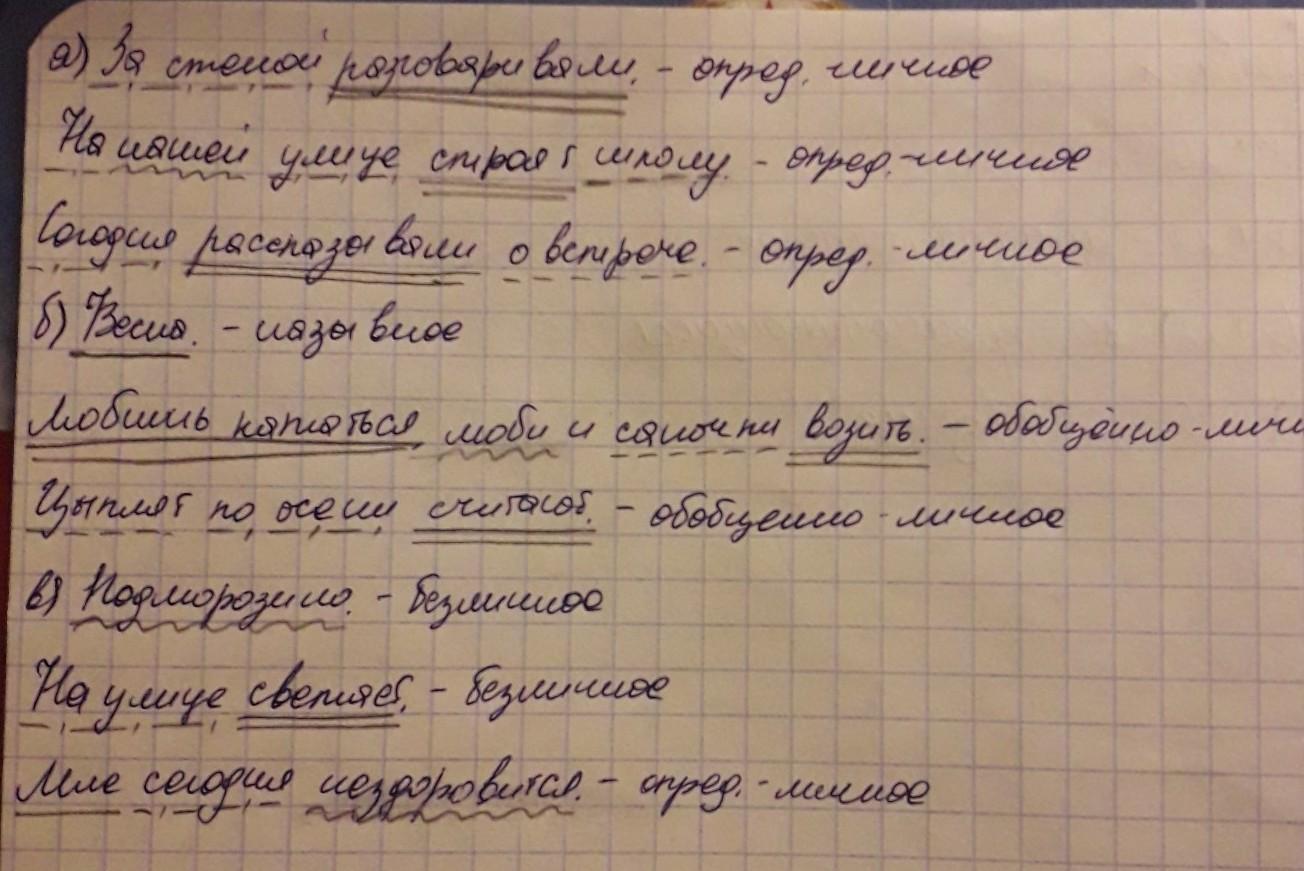 а) За стеной разговаривали. - опред. личное
На нашей улице строят школу. - опред.-личное
Сегодня рассказывали о встрече. - опред.-личное
б) Весна. - назывное
Любишь кататься люби и саночки возить. - обобщённо-личн
Цыплят по осени считают. - обобщенно-личное
в) Подморозило. - безличное
На улице светлеет. - безличное
Мне сегодня нездоровится. - опред.-личное